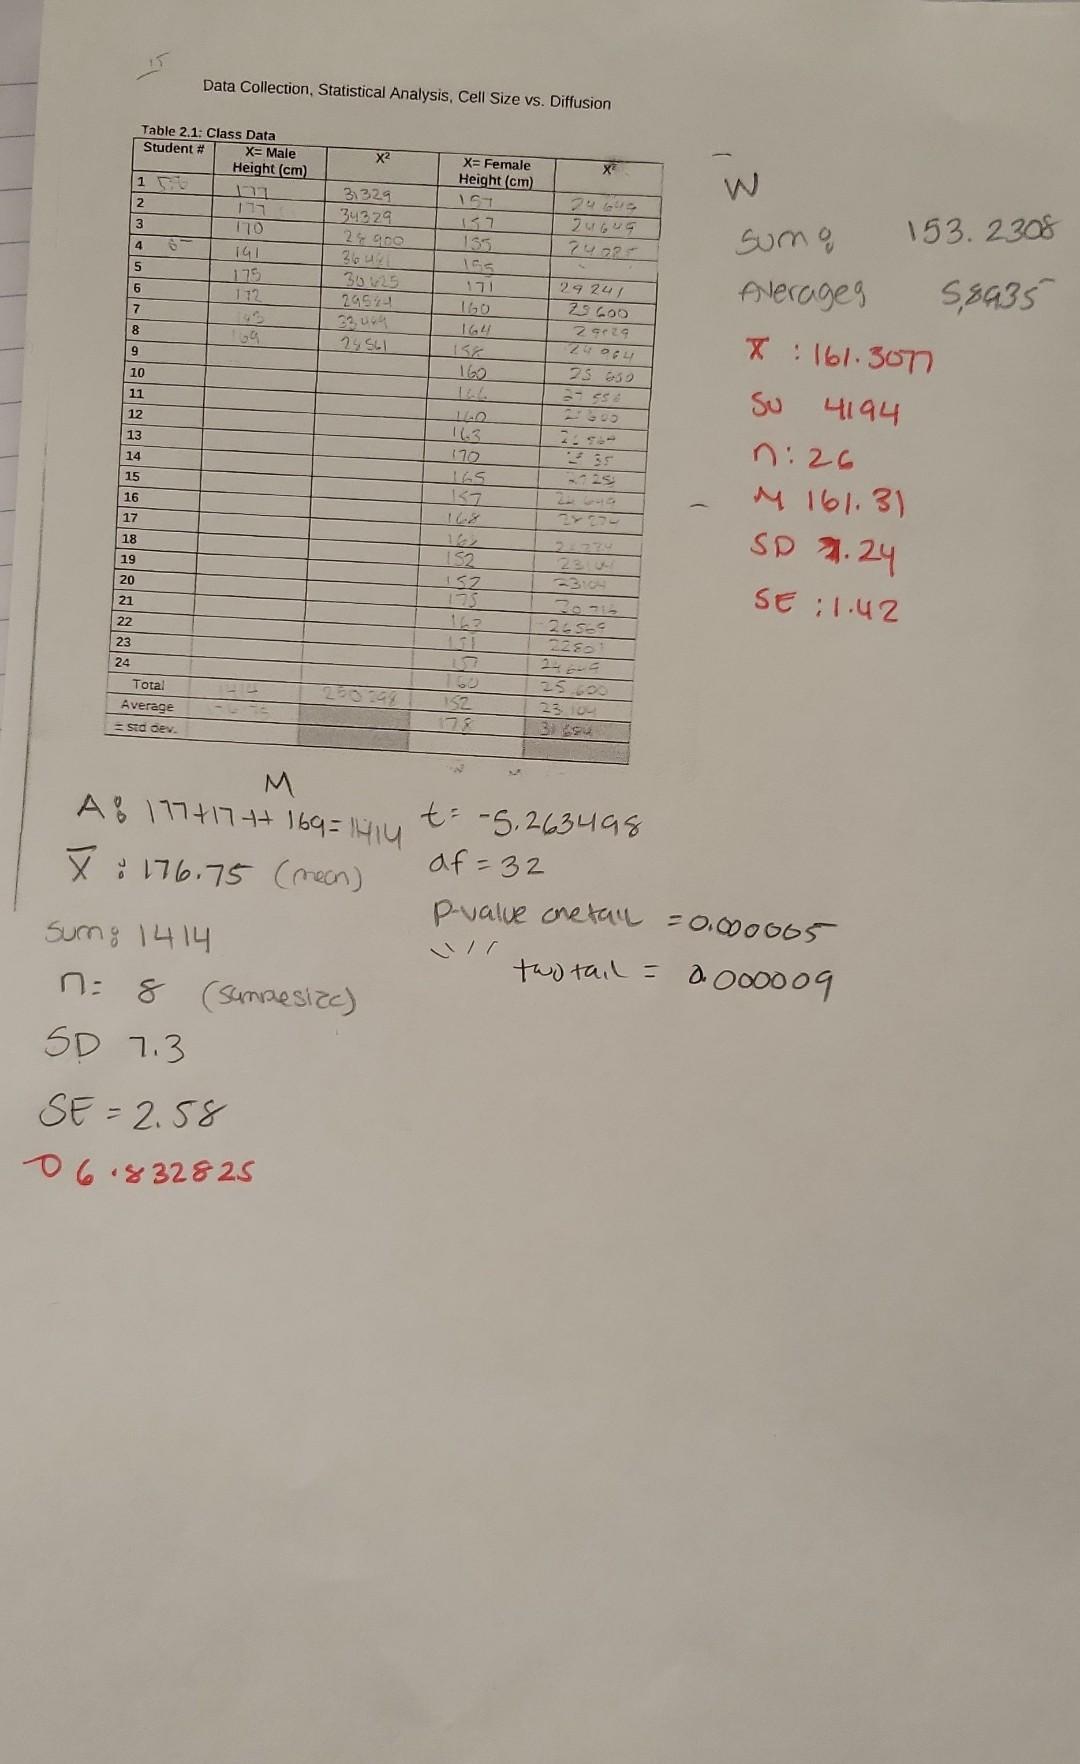 15
Data Collection, Statistical Analysis, Cell Size vs. Diffusion
Table 2.1: Class Data
Student # X= Male Height (cm) X² X= Female Height (cm) X²
1 177 31329 157 24649
2 177 31329 157 24649
3 170 28900 155
4 191 36481 155
5 175 30625 171 29241
6 172 29584 160 25600
7 33489 164
8 169 28561 158 24964
9 160
10
11 160
12 163
13 170
14 165
15 157 24649
16 168
17
18 152 23104
19 152 23104
20 175
21 163 26569
22 151 22801
23 157 24649
24 160 25600
Total 1414 250298 152 23104
Average 176.75 178 31684
= std dev.
W
Sum: 153.2308
Averages 5,8935
X̄ : 161.3077
Su 4194
n: 26
M 161.31
SD 7.24
SE : 1.42
M
A: 177+17++ 169=1414
X̄ : 176.75 (mean)
Sum: 1414
n= 8 (samplesize)
SD 7.3
SE = 2.58
6.832825
t= -5.263498
df = 32
p-value onetail = 0.000005
twotail = 0.000009